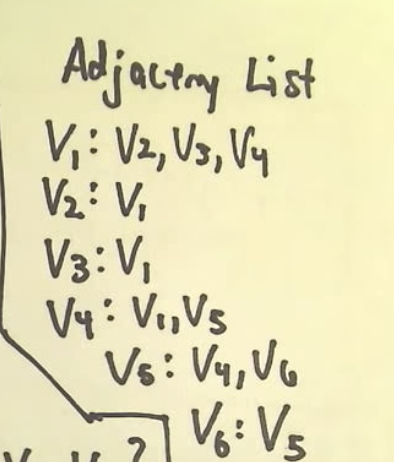 Adjaceny List
V₁: V₂, V₃, V₄
V₂: V₁
V₃: V₁
V₄: V₁, V₅
V₅: V₄, V₆
V₆: V₅
?